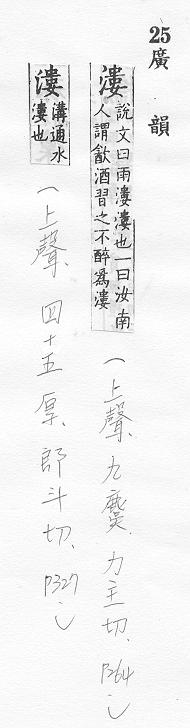 25廣韻
漊說文曰雨漊漊也一曰汝南
人謂飲酒習之不醉爲漊
(上聲、九麌、力主切、P264)
漊溝通水
漊也
(上聲、四十五厚、郎斗切、P327)